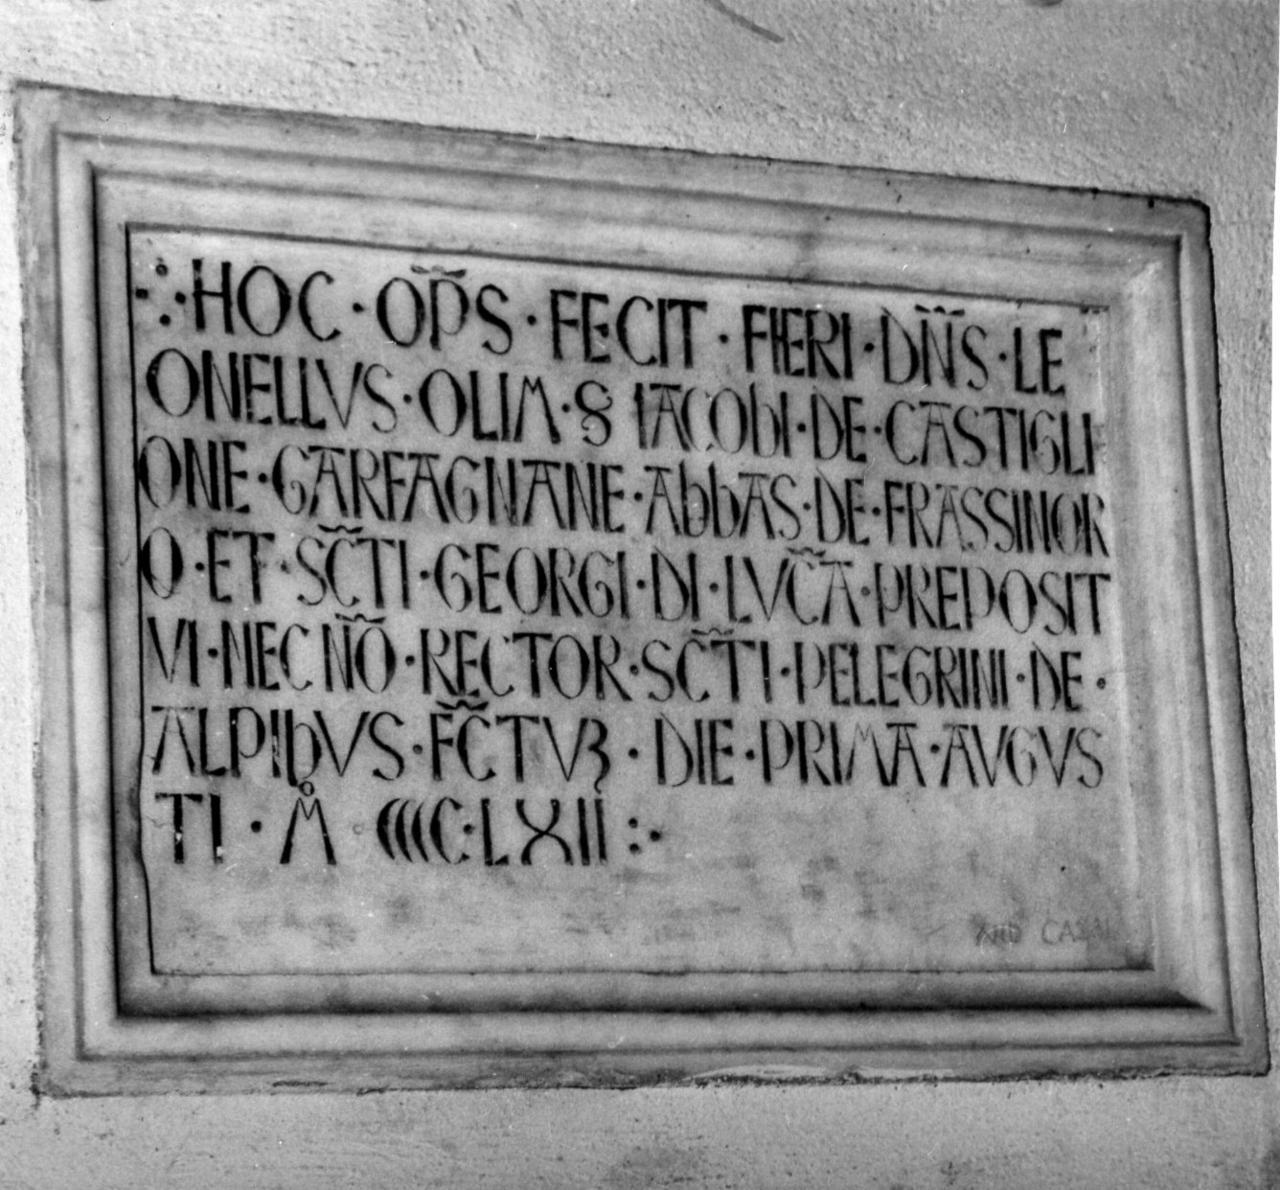 HOC · OP̃S · FECIT · FIERI · DÑS · LE
ONELLVS · OLIM · § IACObI · DE · CASTIGLI
ONE · GARFAGNANE · AbbAS · DE · FRASSINOR
O · ET · SC̃TI · GEORGI · DI · LVC̃A · PREPOSIT
VI · NEC NÕ · RECTOR · SC̃TI · PELEGRINI · DE ·
ALPIbVS · FC̃TVꝫ · DIE · PRIMA · AVGVS
TI · M̊ CCCC · LXII